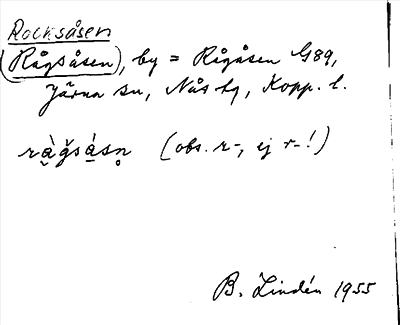 Rocksåsen
(Rågsåsen), by = Rågåsen G89,
Järna sn, Nås hg, Kopp. l.
rå̀ǧsåsn̥ (obs. r-, ej r-!)
B. Lindén 1955